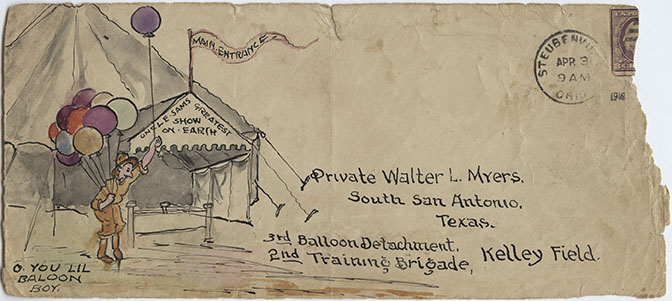 MAIN-ENTRANCE
UNCLE-SAM'S GREATEST
SHOW
ON-EARTH
O. YOU LIL
BALOON
BOY.
APR 3
9 AM
OHIO
1918
Private Walter L. Myers.
South San Antonio,
Texas.
3rd Balloon Detachment.
2nd Training Brigade, Kelley Field.